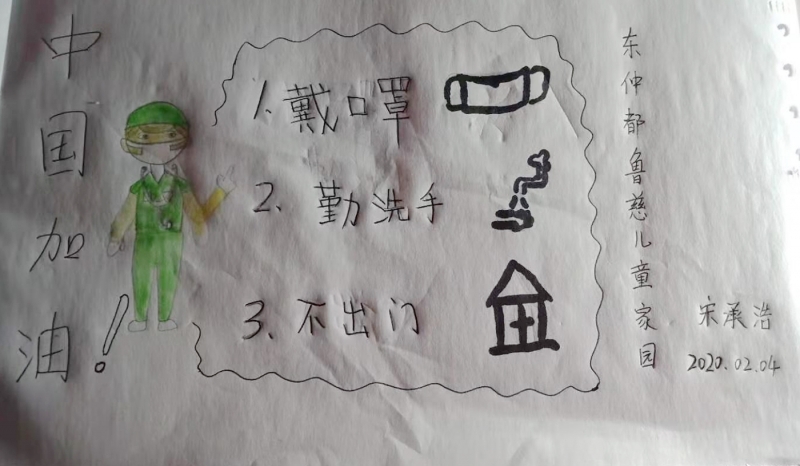 中国加油!
1.戴口罩
2、勤洗手
3、不出门
东仲都鲁慈儿童家园
宋承浩
2020.02.04